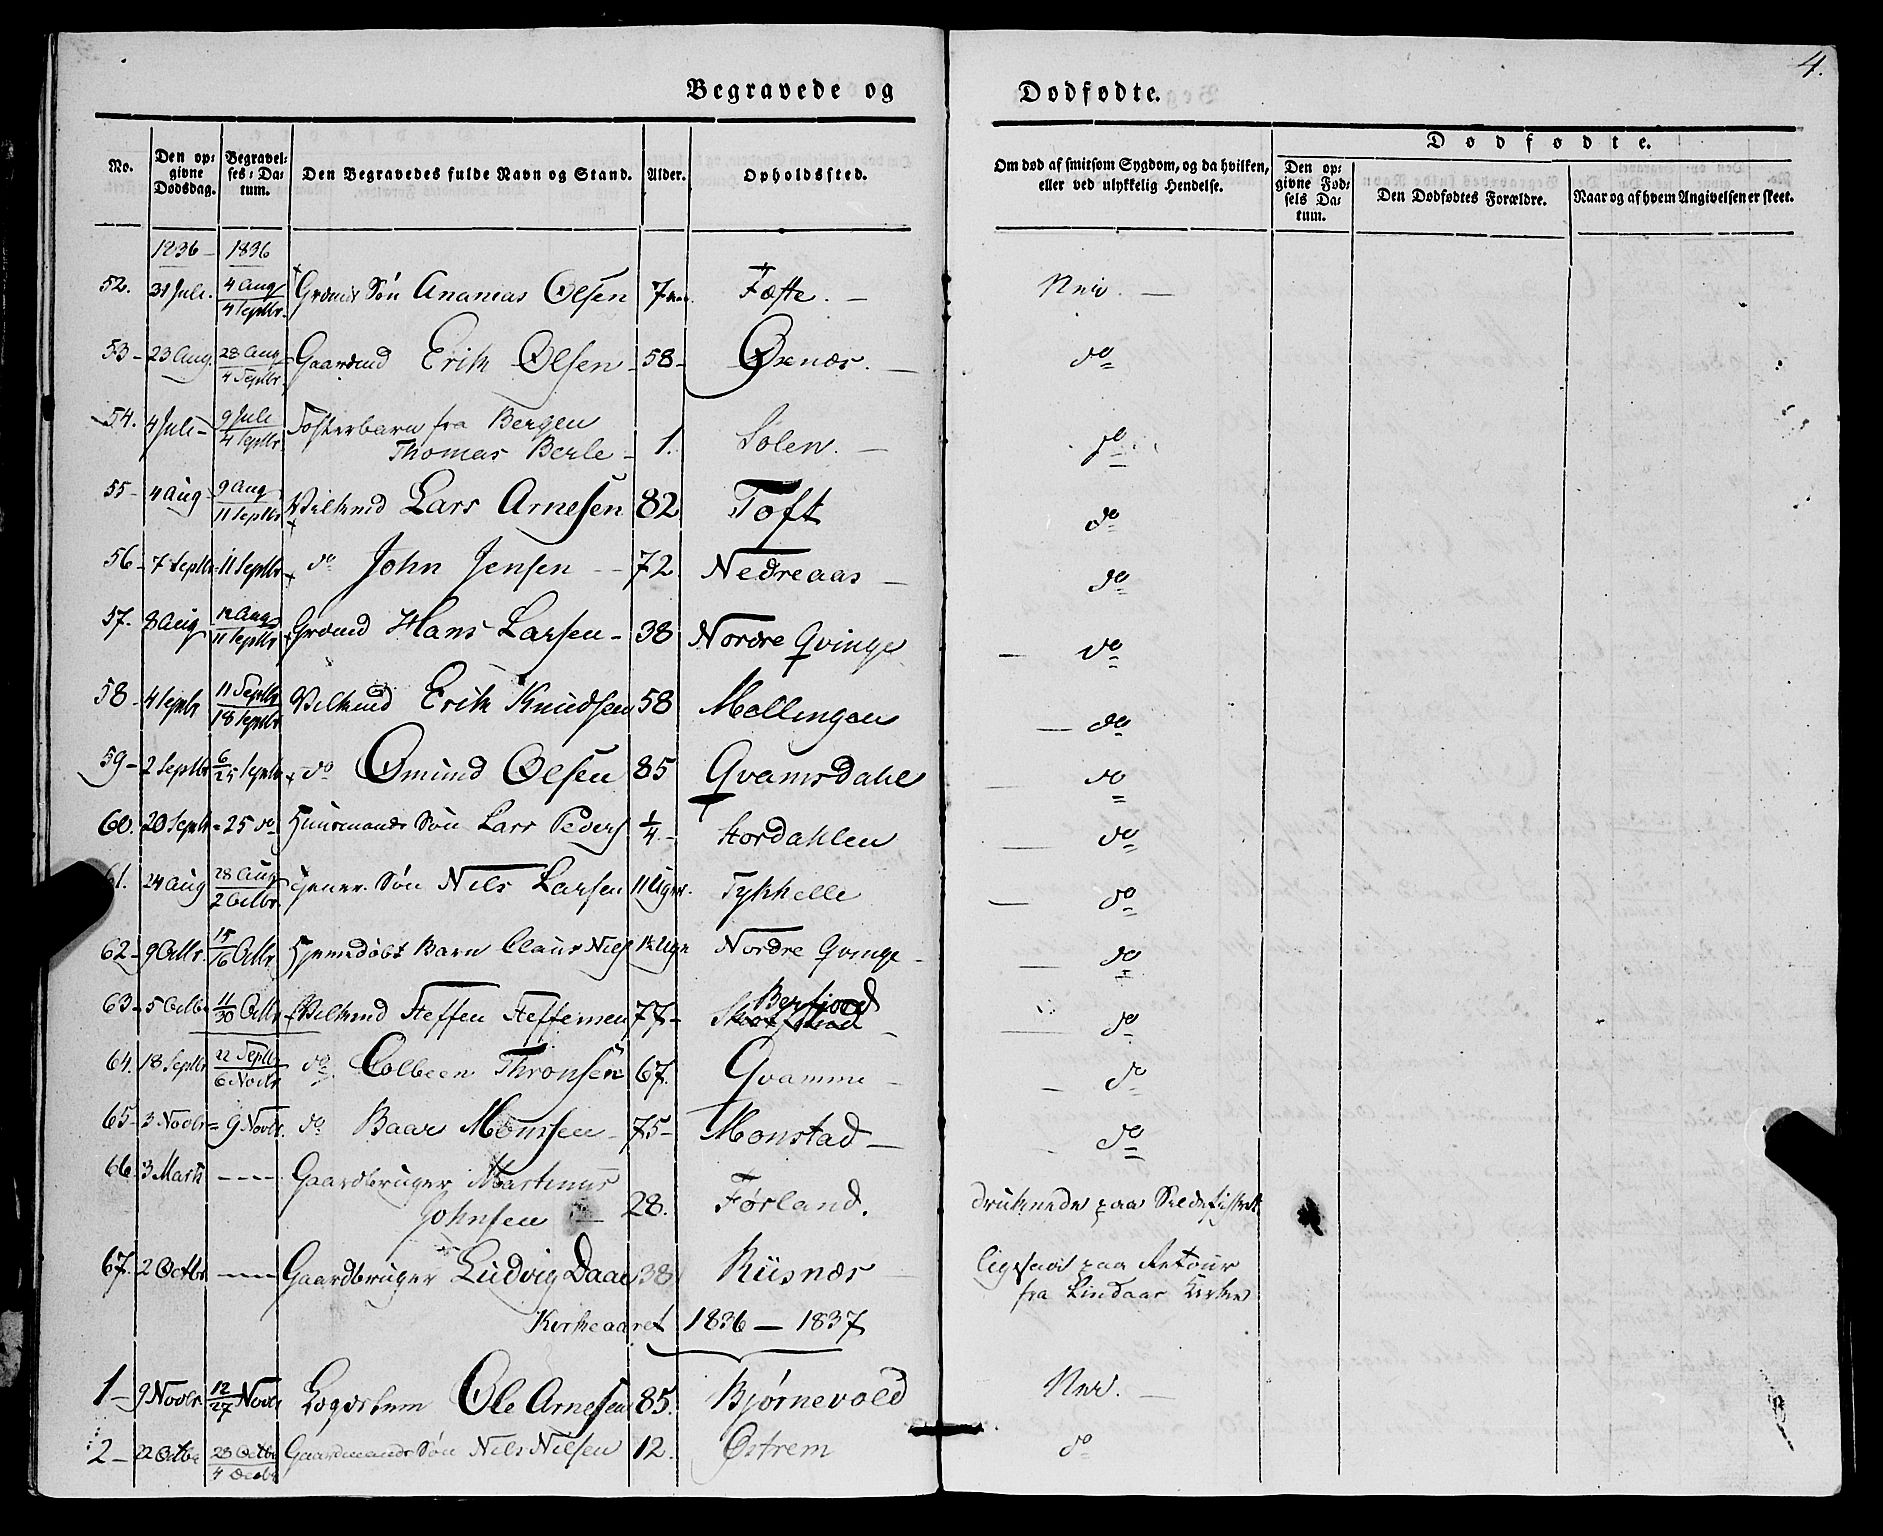 4.
Begravede og Dødfødte.
No. Den opgivne Dødsdag. Begravelses-Datum. Den Begravedes fulde Navn og Stand. Alder. Opholdssted. Om død af smitsom Sygdom, og da hvilken, eller ved ulykkelig Hendelse. Dødfødte. Den opgivne Fødsels Datum. Den Dødfødtes Forældre. Naar og af hvem Angivelsen er skeet.
1836 - 1836
52. 31 Juli. 4 Aug / 4 Septbr. Grdmds Søn Ananias Olsen 7 Fæste. — Nei. —
53 - 23 Aug. 28 Aug / 4 Septbr. Gaardmd Erik Olsen - 58 - Oxnæs. — do
54. 4 Juli - 9 Juli / 4 Septbr. Fosterbarn fra Bergen
Thomas Berle - 1. Solen. — do
55 - 4 Aug - 9 Aug / 11 Septbr Vilkmd Lars Arnesen 82 Toft do
56 - 7 Septbr = 11 Septbr do John Jensen - - 72 Nedreaas — do
57. 8 Aug 12 Aug / 11 Septbr Grdmd Hans Larsen - 38 Nordre Qvinge — do
58 - 4 Septbr 11 Septbr / 18 Septbr Vilkmd Erik Knudsen 58 Mollingen — do
59 - 2 Septbr 6/25 Septbr do Omund Olsen 85 Qvamsdahl — do
60. 20 Septbr = 25 do Huusmands Søn Lars Peders 1/4 - Stordahlen — do
61. 24 Aug 28 Aug / 2 Octbr. Søn Nils Larsen 11 Uger. Tykhelle — do
62 - 9 Octbr. 15/16 Octbr. Hjemdøbt Barn Claus Niels Uge Nordre Qvinge - — do
63 - 5 Octbr 11/30 Octbr Vilkmd Steffen Steffensen 77 - Berfjord — do
64. 18 Septbr 22 Septbr / 6 Novbr do Colbeen Thronsen 67. Qvamme — do
65 - 3 Novbr = 9 Novbr. do Baar Monsen - 75 - Monstad — do
66. 3 Marts - - - Gaardbruger Martinus
Johnsen — 28. Førland. druknede paa Sildefisket
67. 2 Octbr - - - Gaardbruger Ludvig Daae 38 Riisnæs ligesaa paa Retour
fra Lindaas Kirke
Kirkeaaret 1836 — 1837
1 - 9 Novbr. 12/27 Novbr Ole Arnesen 85. Bjørnevold Nei. —
2 - 22 Octbr 28 Octbr / 4 Decbr Gaardmands Søn Nils Nilsen 12. Østrem do